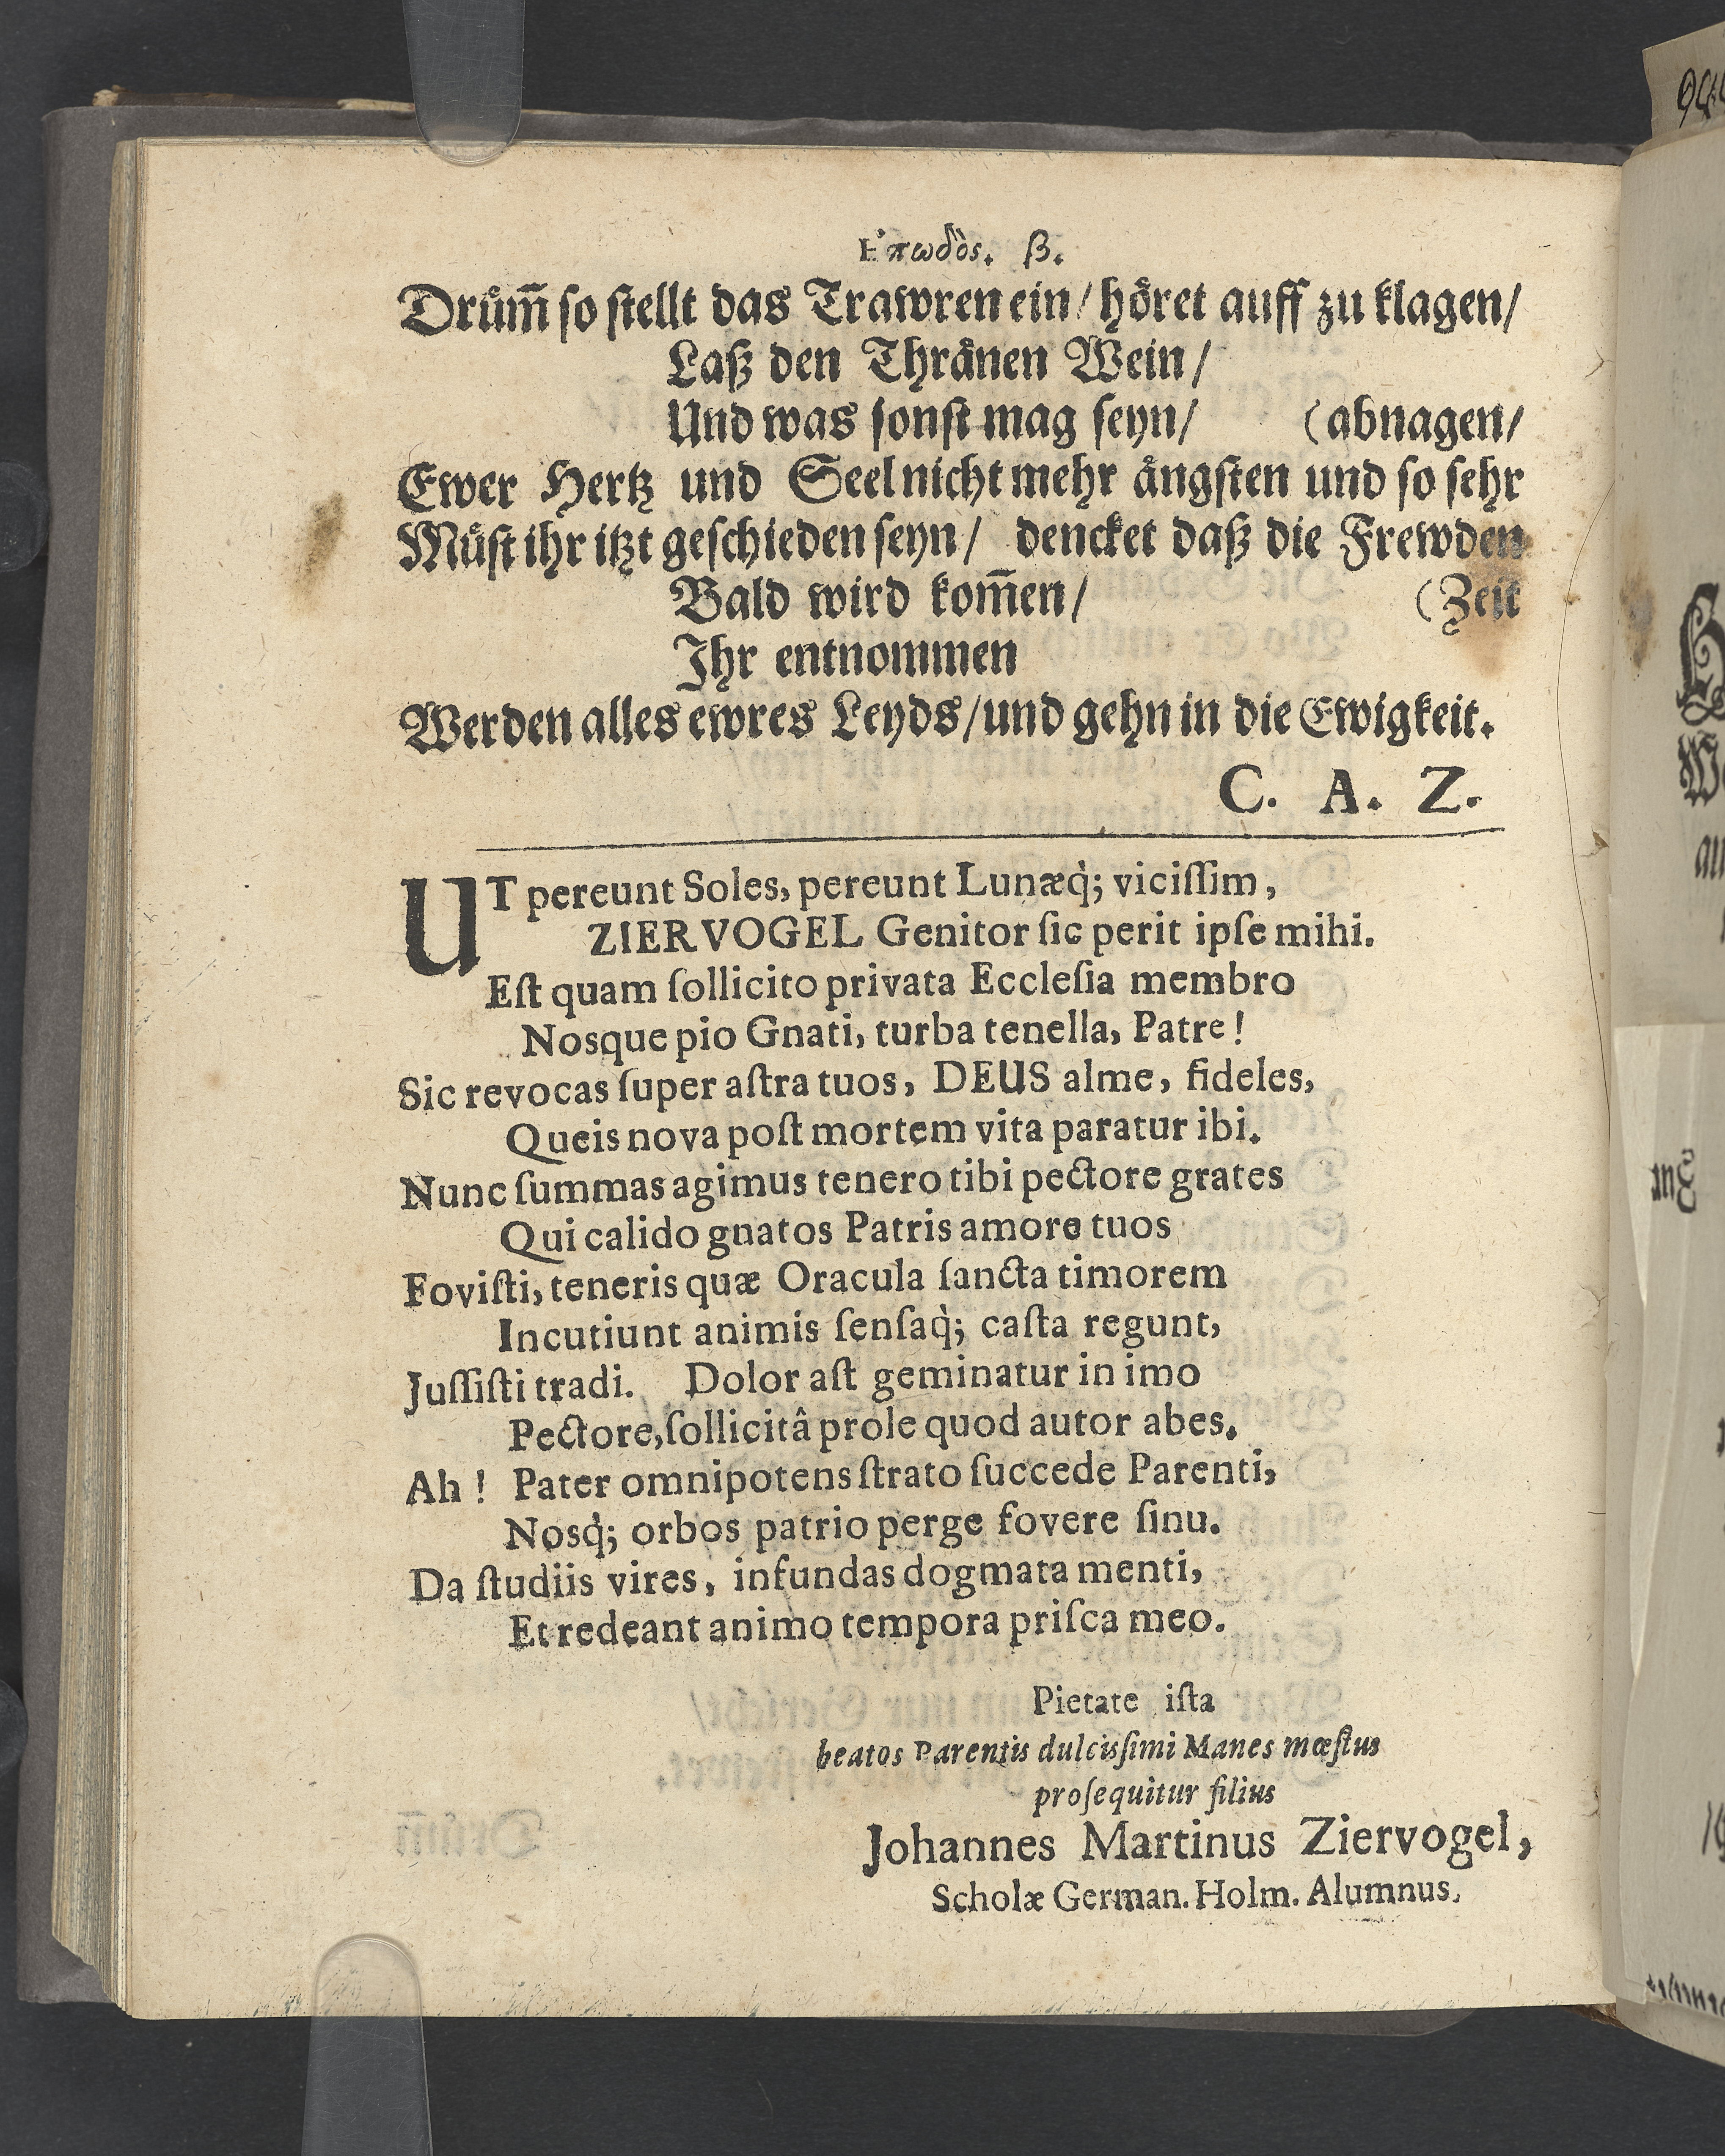 Ἐπωδὸς. β.
Drům̅ so stellt das Trawren ein/ hôret auff zu klagen/
Laß den Thrånen Wein/
Und was sonst mag seyn/ (abnagen/
Ewer Hertz und Seel nicht mehr ångsten und so sehr
Můst ihr itzt geschieden seyn/ dencket daß die Frewden
Bald wird kom̅en/ (Zeit
Ihr entnommen
Werden alles ewres Leyds/ und gehn in die Ewigkeit.
C. A. Z.
UT pereunt Soles, pereunt Lunæq̀; viciſſim,
ZIERVOGEL Genitor ſic perit ipſe mihi.
Eſt quam ſollicito privata Eccleſia membro
Nosque pio Gnati, turba tenella, Patre!
Sic revocas ſuper aſtra tuos, DEUS alme, fideles,
Queis nova poſt mortem vita paratur ibi.
Nunc ſummas agimus tenero tibi pectore grates
Qui calido gnatos Patris amore tuos
Foviſti, teneris quæ Oracula ſancta timorem
Incutiunt animis ſenſaq̀; caſta regunt,
Juſſiſti tradi. Dolor aſt geminatur in imo
Pectore, ſollicitâ prole quod autor abes.
Ah! Pater omnipotens ſtrato ſuccede Parenti,
Nosq̀; orbos patrio perge fovere ſinu.
Da ſtudiis vires, infundas dogmata menti,
Et redeant animo tempora priſca meo.
Pietate iſta
beatos Parentis dulcisſimi Manes mœſtus
proſequitur filius
Johannes Martinus Ziervogel,
Scholæ German. Holm. Alumnus.